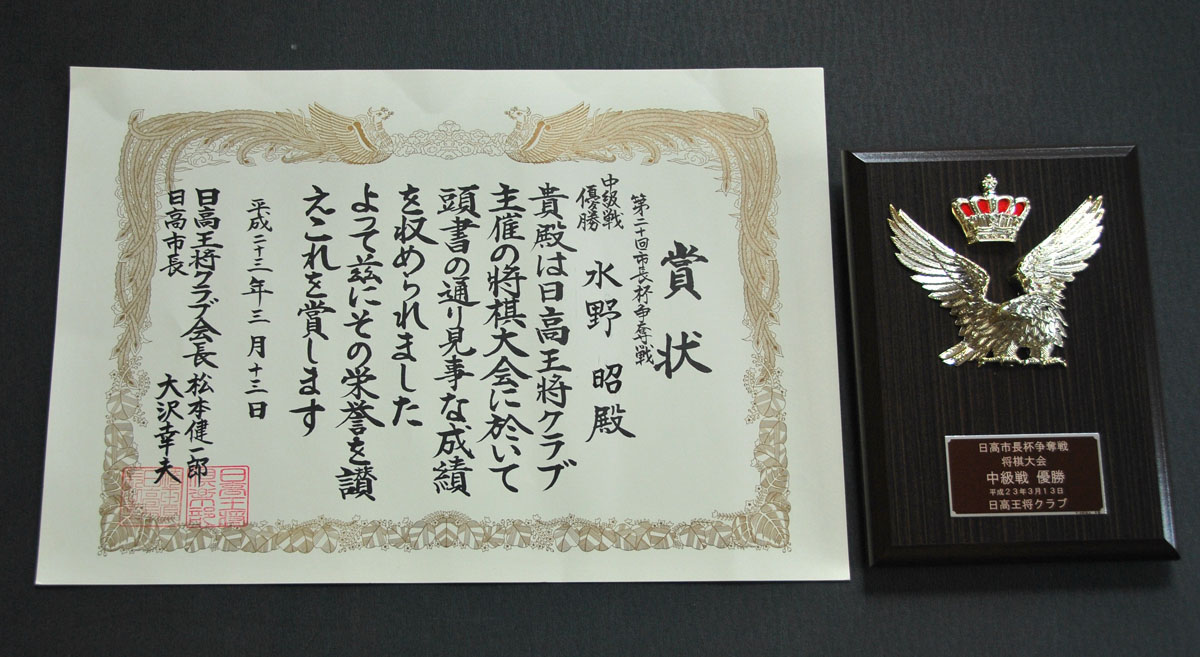 賞状
第二十回市長杯争奪戦
中級戦
優勝
水野 昭 殿
貴殿は日高王将クラブ
主催の将棋大会に於いて
頭書の通り見事な成績
を収められました
よって茲にその栄誉を讃
えこれを賞します
平成二十三年三月十三日
日高王将クラブ会長 松本健一郎
日高市長 大沢幸夫
日高市長杯争奪戦
将棋大会
中級戦 優勝
平成23年3月13日
日高王将クラブ